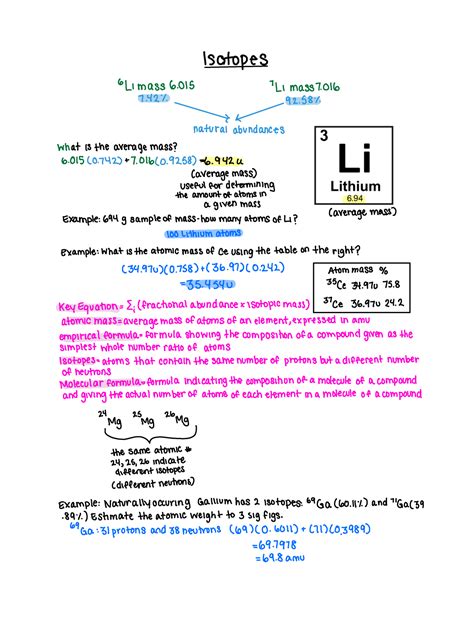 Isotopes
⁶Li mass 6.015
⁷Li mass 7.016
7.42%
92.58%
natural abundances
What is the average mass?
6.015(0.742)+7.016(0.9258)=6.942u
(average mass)
useful for determining
the amount of atoms in
a given mass
3
Li
Lithium
6.94
(average mass)
Example: 694 g sample of mass-how many atoms of Li?
100 Lithium atoms
Example: What is the atomic mass of Ce using the table on the right?
(34.97u)(0.758)+(36.97)(0.242)
=35.454u
Atom mass %
³⁵Ce 34.97u 75.8
³⁷Ce 36.97u 24.2
Key Equation= Σᵢ (fractional abundance x isotopic mass)
atomic mass=average mass of atoms of an element, expressed in amu
empirical formula= formula showing the composition of a compound given as the
simplest whole number ratio of atoms
Isotopes=atoms that contain the same number of protons but a different number
of neutrons
Molecular formula=formula indicating the composition of a molecule of a compound
and giving the actual number of atoms of each element in a molecule of a compound
²⁴Mg ²⁵Mg ²⁶Mg
the same atomic #
24, 25, 26 indicate
different isotopes
(different neutrons)
Example: Naturally occuring Gallium has 2 isotopes: ⁶⁹Ga (60.11%) and ⁷¹Ga(39
.89%) Estimate the atomic weight to 3 sig figs.
⁶⁹Ga: 31 protons and 38 neutrons (69)(0.6011)+(71)(0.3989)
=69.7978
=69.8 amu